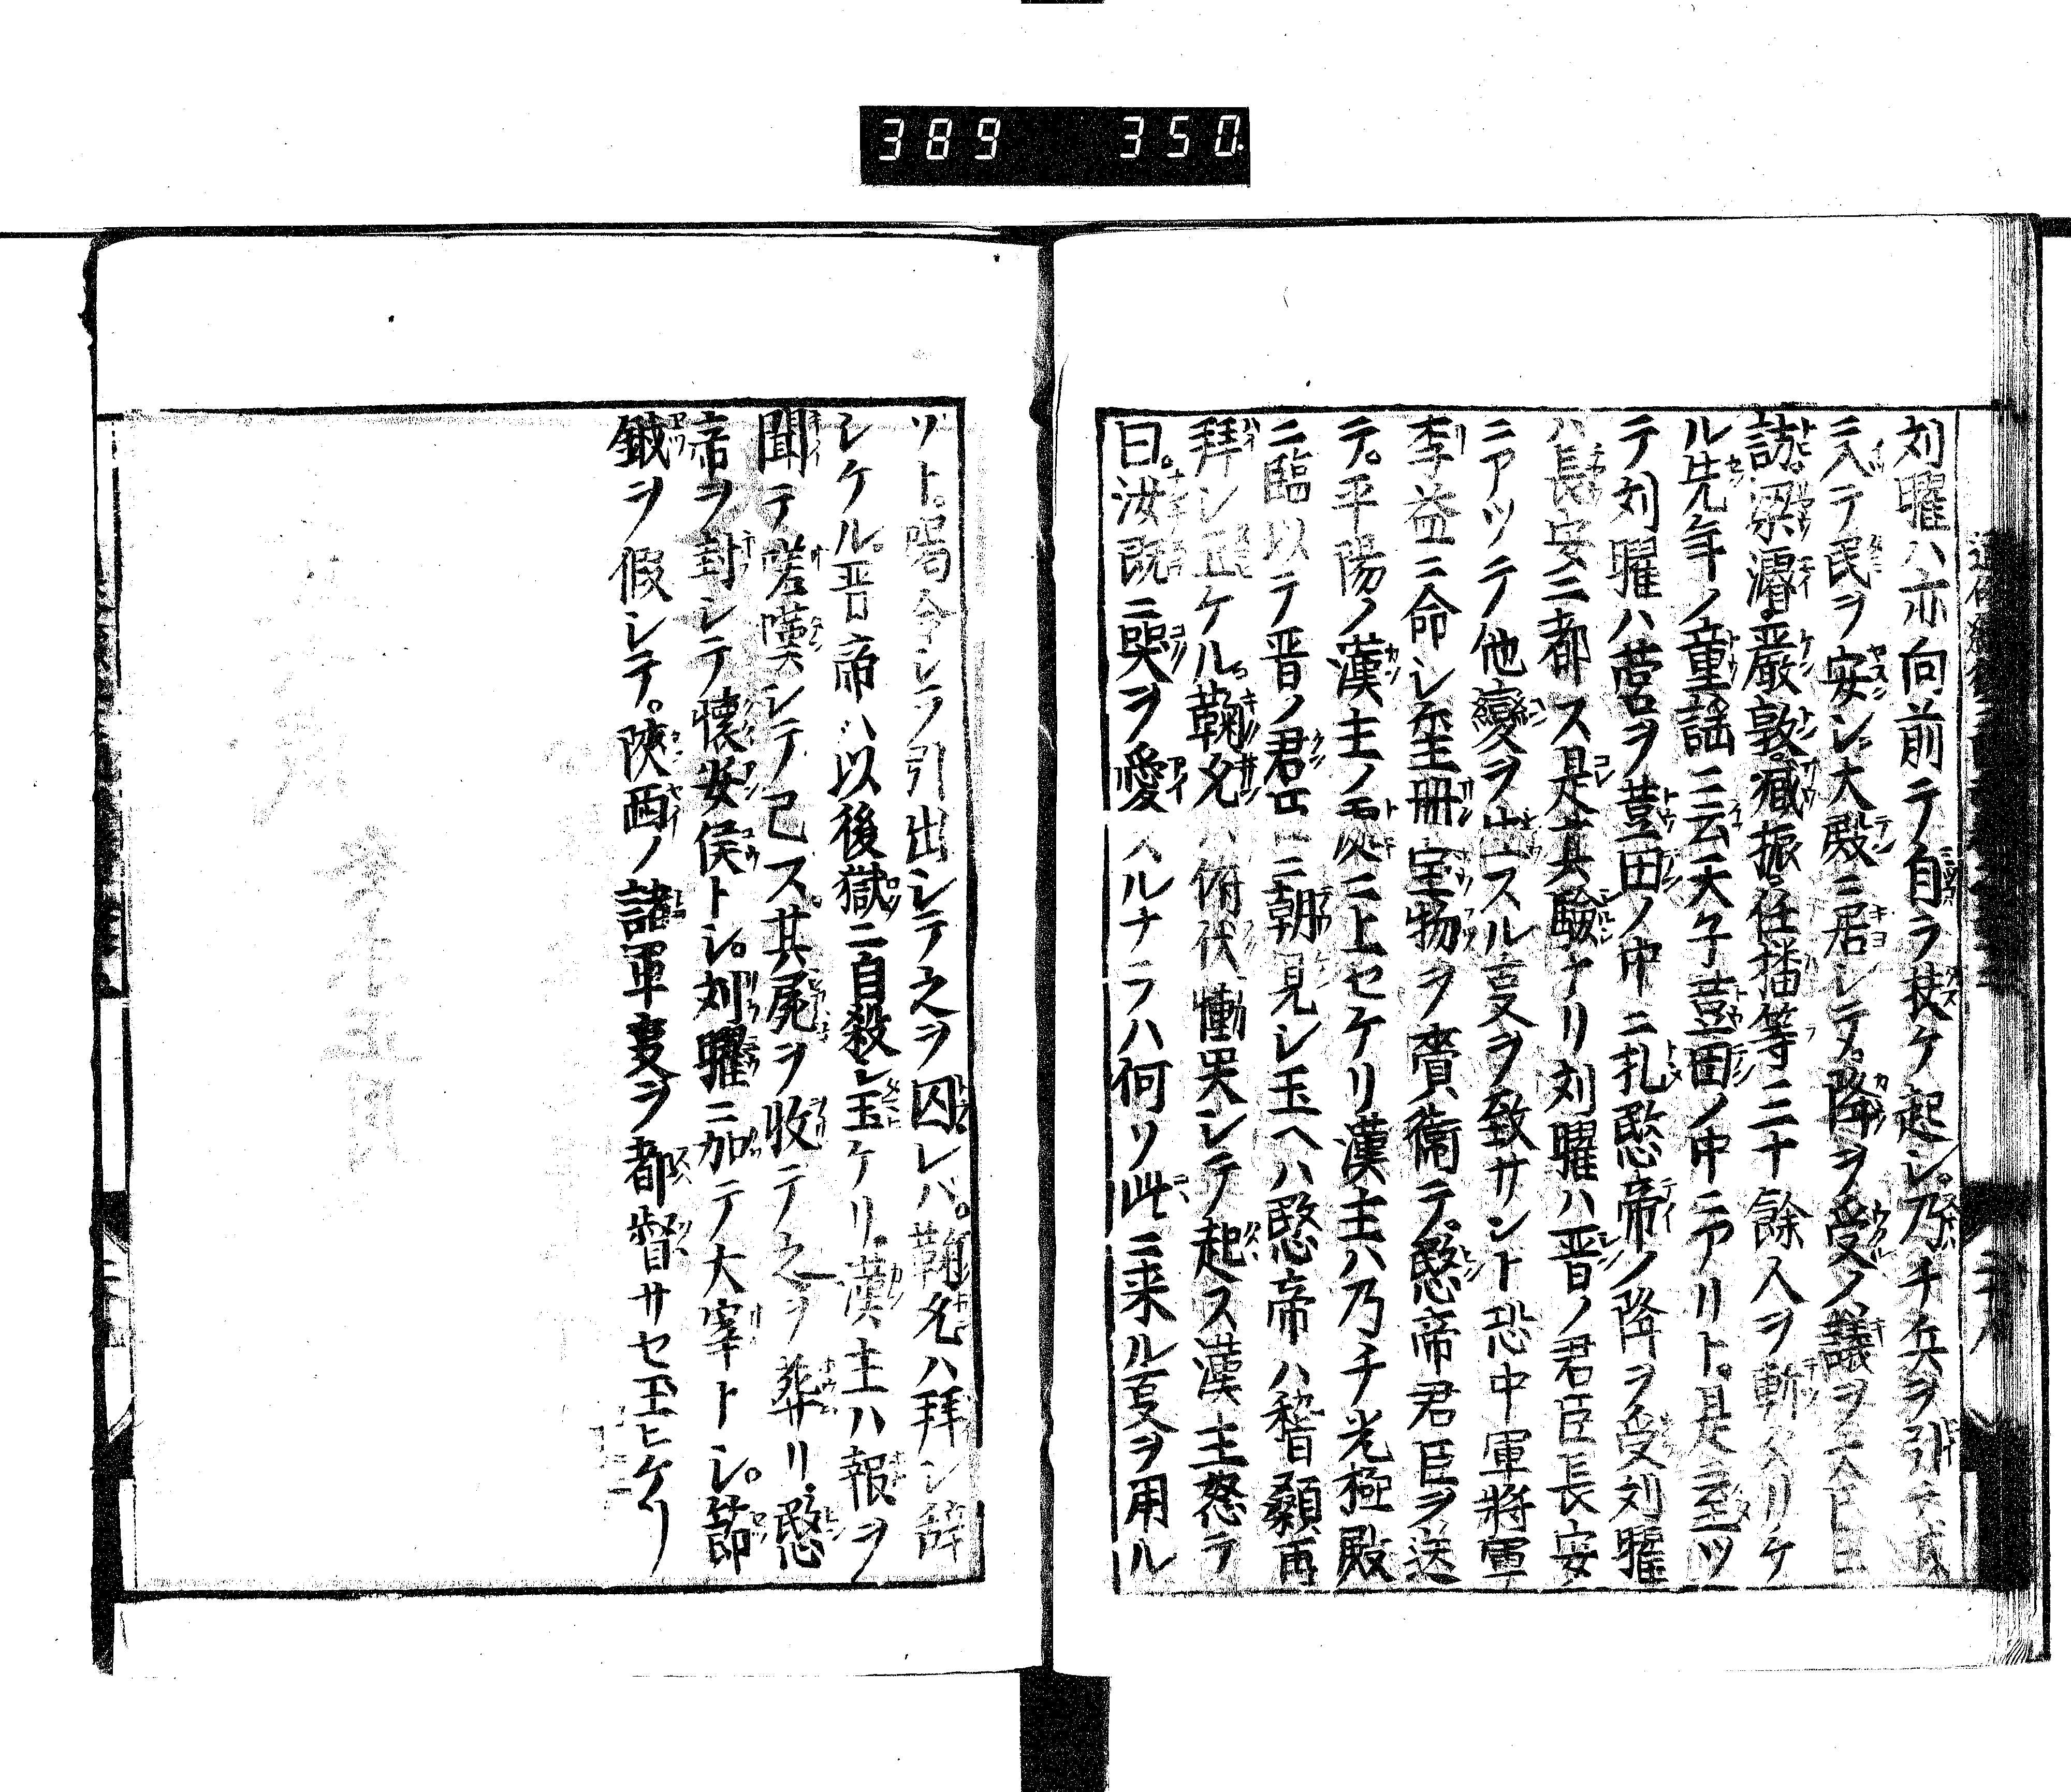 389 350
刘曜ハ亦向前テ自ラ扶ケ起シ。乃チ兵ヲ引テ城
ニ入テ民ヲ安シ。大殿ニ居シテ。降ヲ受ノ議ヲ
訪。梁濬。嚴敦。臧振。任播等二十餘人ヲ斬スリケ
ル先年ノ童謡ニ云天子荳田ノ中ニアリト。是ニ至ツ
テ刘曜ハ營ヲ荳田ノ中ニ扎愍帝ノ降ヲ受刘曜
ハ長安ニ都ス是其驗ナリ刘曜ハ晋ノ君臣長安
ニアツテ他變ヲ出スル叓ヲ致サント恐中軍將軍
李益ニ命シ璽冊宝物ヲ賷衞テ。愍帝君臣ヲ送
テ。平陽ノ漢主ノ処ニ上セケリ漢主ハ乃チ光極殿
ニ臨以テ晋ノ君臣ニ朝見シ玉ヘハ愍帝ハ稽顙再
拜シ玉ケル。鞠允ハ俯伏慟哭シテ起ス漢主怒テ
曰。汝既ニ哭ヲ愛スルナラハ何ソ此ニ来ル叓ヲ用ル
ソト。喝令シテ引出シテ之ヲ囚レバ。鞠允ハ拜シ辞
シケル。晋帝ハ以後獄ニ自殺シ玉ケリ。漢主ハ報ヲ
聞テ嗟嘆シテ已ス。其屍ヲ收テ之ヲ葬リ。愍
帝ヲ封シテ懐安侯トシ。刘曜ニ加テ大宰トシ。節
鉞ヲ假シテ。陜西ノ諸軍叓ヲ都督サセ玉ヒケリ